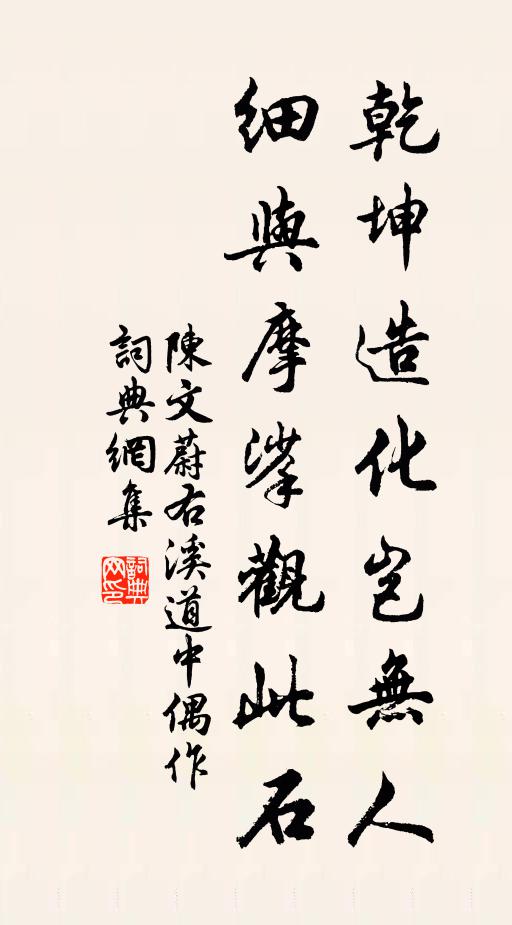 乾坤造化豈無人
細與摩挲觀此石
陳文蔚右溪道中偶作
詞典網集
詞典网印